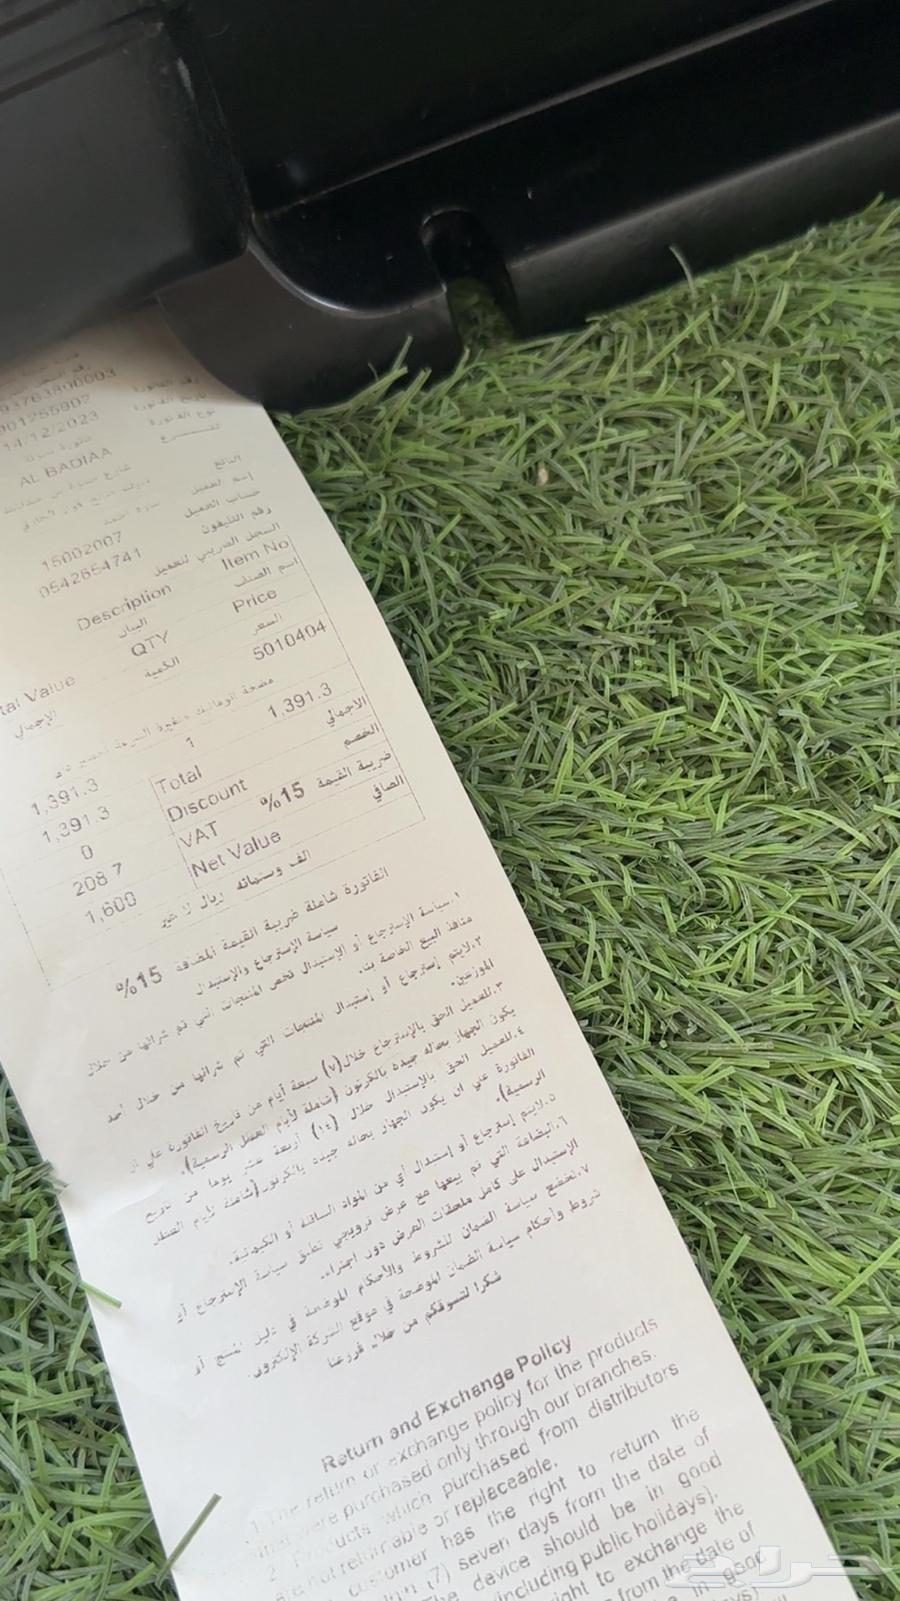 رقم الفاتورة
03763800003
تاريخ الفاتورة
001255902
نوع الفاتورة
14/12/2023
AL BADIAA
البائع
إسم العميل
حساب العميل
رقم التليفون
15002007
السجل الضريبي للعميل
0542654741
Item No
Description
اسم الصنف
البيان
Price
QTY
السعر
الكمية
tal Value
الإجمالي
5010404
1,391.3
1
1,391.3
الاجمالي
Total
1,391.3
الخصم
Discount
0
ضريبة القيمة 15%
VAT
208.7
الصافي
Net Value
1,600
الف وستمائه ريال لا غير
الفاتورة شاملة ضريبة القيمة المضافة 15%
سياسة الإسترجاع والإستبدال
١.سياسة الإسترجاع أو الإستبدال تخص المنتجات التي تم شرائها من خلال
منافذ البيع الخاصة بنا.
٢.لايتم إسترجاع أو إستبدال المنتجات التي تم شرائها من خلال أحد
الموزعين.
٣.للعميل الحق بالإسترجاع خلال(٧) سبعة أيام من تاريخ الفاتورة علي أن
يكون الجهاز بحاله جيده بالكرتون (شاملة لأيام العطل الرسمية).
٤.للعميل الحق بالإستبدال خلال (١٤) أربعة عشر يوما من تاريخ
الفاتورة علي ان يكون الجهاز بحاله جيده بالكرتون(شاملة لأيام العطل
الرسمية).
٥.لايتم إسترجاع أو إستبدال أي من المواد السائلة أو الكيميائية.
٦.البضاعة التي تم بيعها مع عرض ترويجي تطبق سياسة الإسترجاع أو
الإستبدال على كامل ملحقات العرض دون اجتزاء.
٧.تخضع سياسة الضمان للشروط والأحكام الموضحة في دليل المنتج أو
شروط وأحكام سياسة الضمان الموضحة في موقع الشركة الإلكتروني.
شكرا لتسوقكم من خلال فروعنا
Return and Exchange Policy
1 The return or exchange policy for the products
that were purchased only through our branches.
2 Products which purchased from distributors
are not returnable or replaceable.
customer has the right to return the
(7) seven days from the date of
The device should be in good
(including public holidays).
right to exchange the
from the date of
be in good
حراج